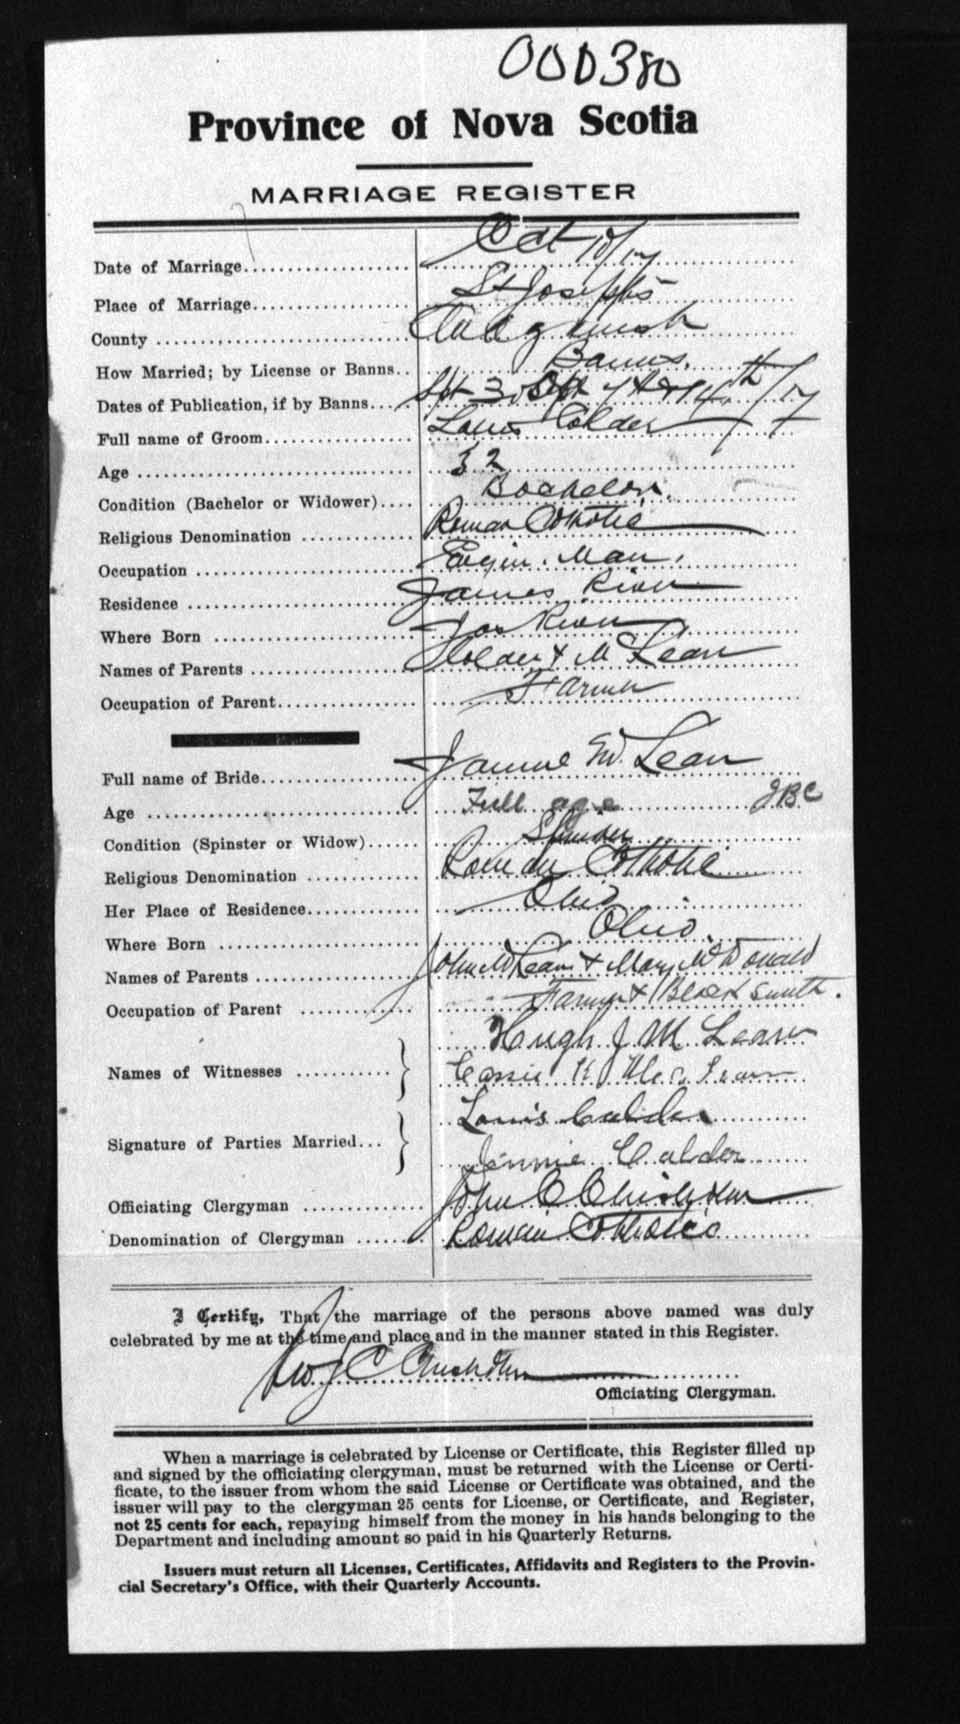 000380
Province of Nova Scotia
MARRIAGE REGISTER
Date of Marriage Oct /17
Place of Marriage St Joseph's
County Antigonish
How Married; by License or Banns Banns.
Dates of Publication, if by Banns Spt 30 Oct 7th & 14th /17
Full name of Groom Louis Colder
Age 32
Condition (Bachelor or Widower) Bachelor.
Religious Denomination Roman Catholic
Occupation Man.
Residence James River
Where Born Jas River
Names of Parents Colder & McLean
Occupation of Parent Farmer
Full name of Bride Jannie McLean
Age Full age JBC
Condition (Spinster or Widow) Spinster
Religious Denomination Roman Catholic
Her Place of Residence Ohio
Where Born Ohio.
Names of Parents John McLean & Mary McDonald
Occupation of Parent Farmer & Blacksmith.
Names of Witnesses Hugh J McLean
Cassie H McLean
Signature of Parties Married Louis Calder
Jennie Calder
Officiating Clergyman John C Chisholm
Denomination of Clergyman Roman Catholic
I Certify, That the marriage of the persons above named was duly
celebrated by me at the time and place and in the manner stated in this Register.
J C Chisholm
Officiating Clergyman.
When a marriage is celebrated by License or Certificate, this Register filled up
and signed by the officiating clergyman, must be returned with the License or Certi-
ficate, to the issuer from whom the said License or Certificate was obtained, and the
issuer will pay to the clergyman 25 cents for License, or Certificate, and Register,
not 25 cents for each, repaying himself from the money in his hands belonging to the
Department and including amount so paid in his Quarterly Returns.
Issuers must return all Licenses, Certificates, Affidavits and Registers to the Provin-
cial Secretary's Office, with their Quarterly Accounts.